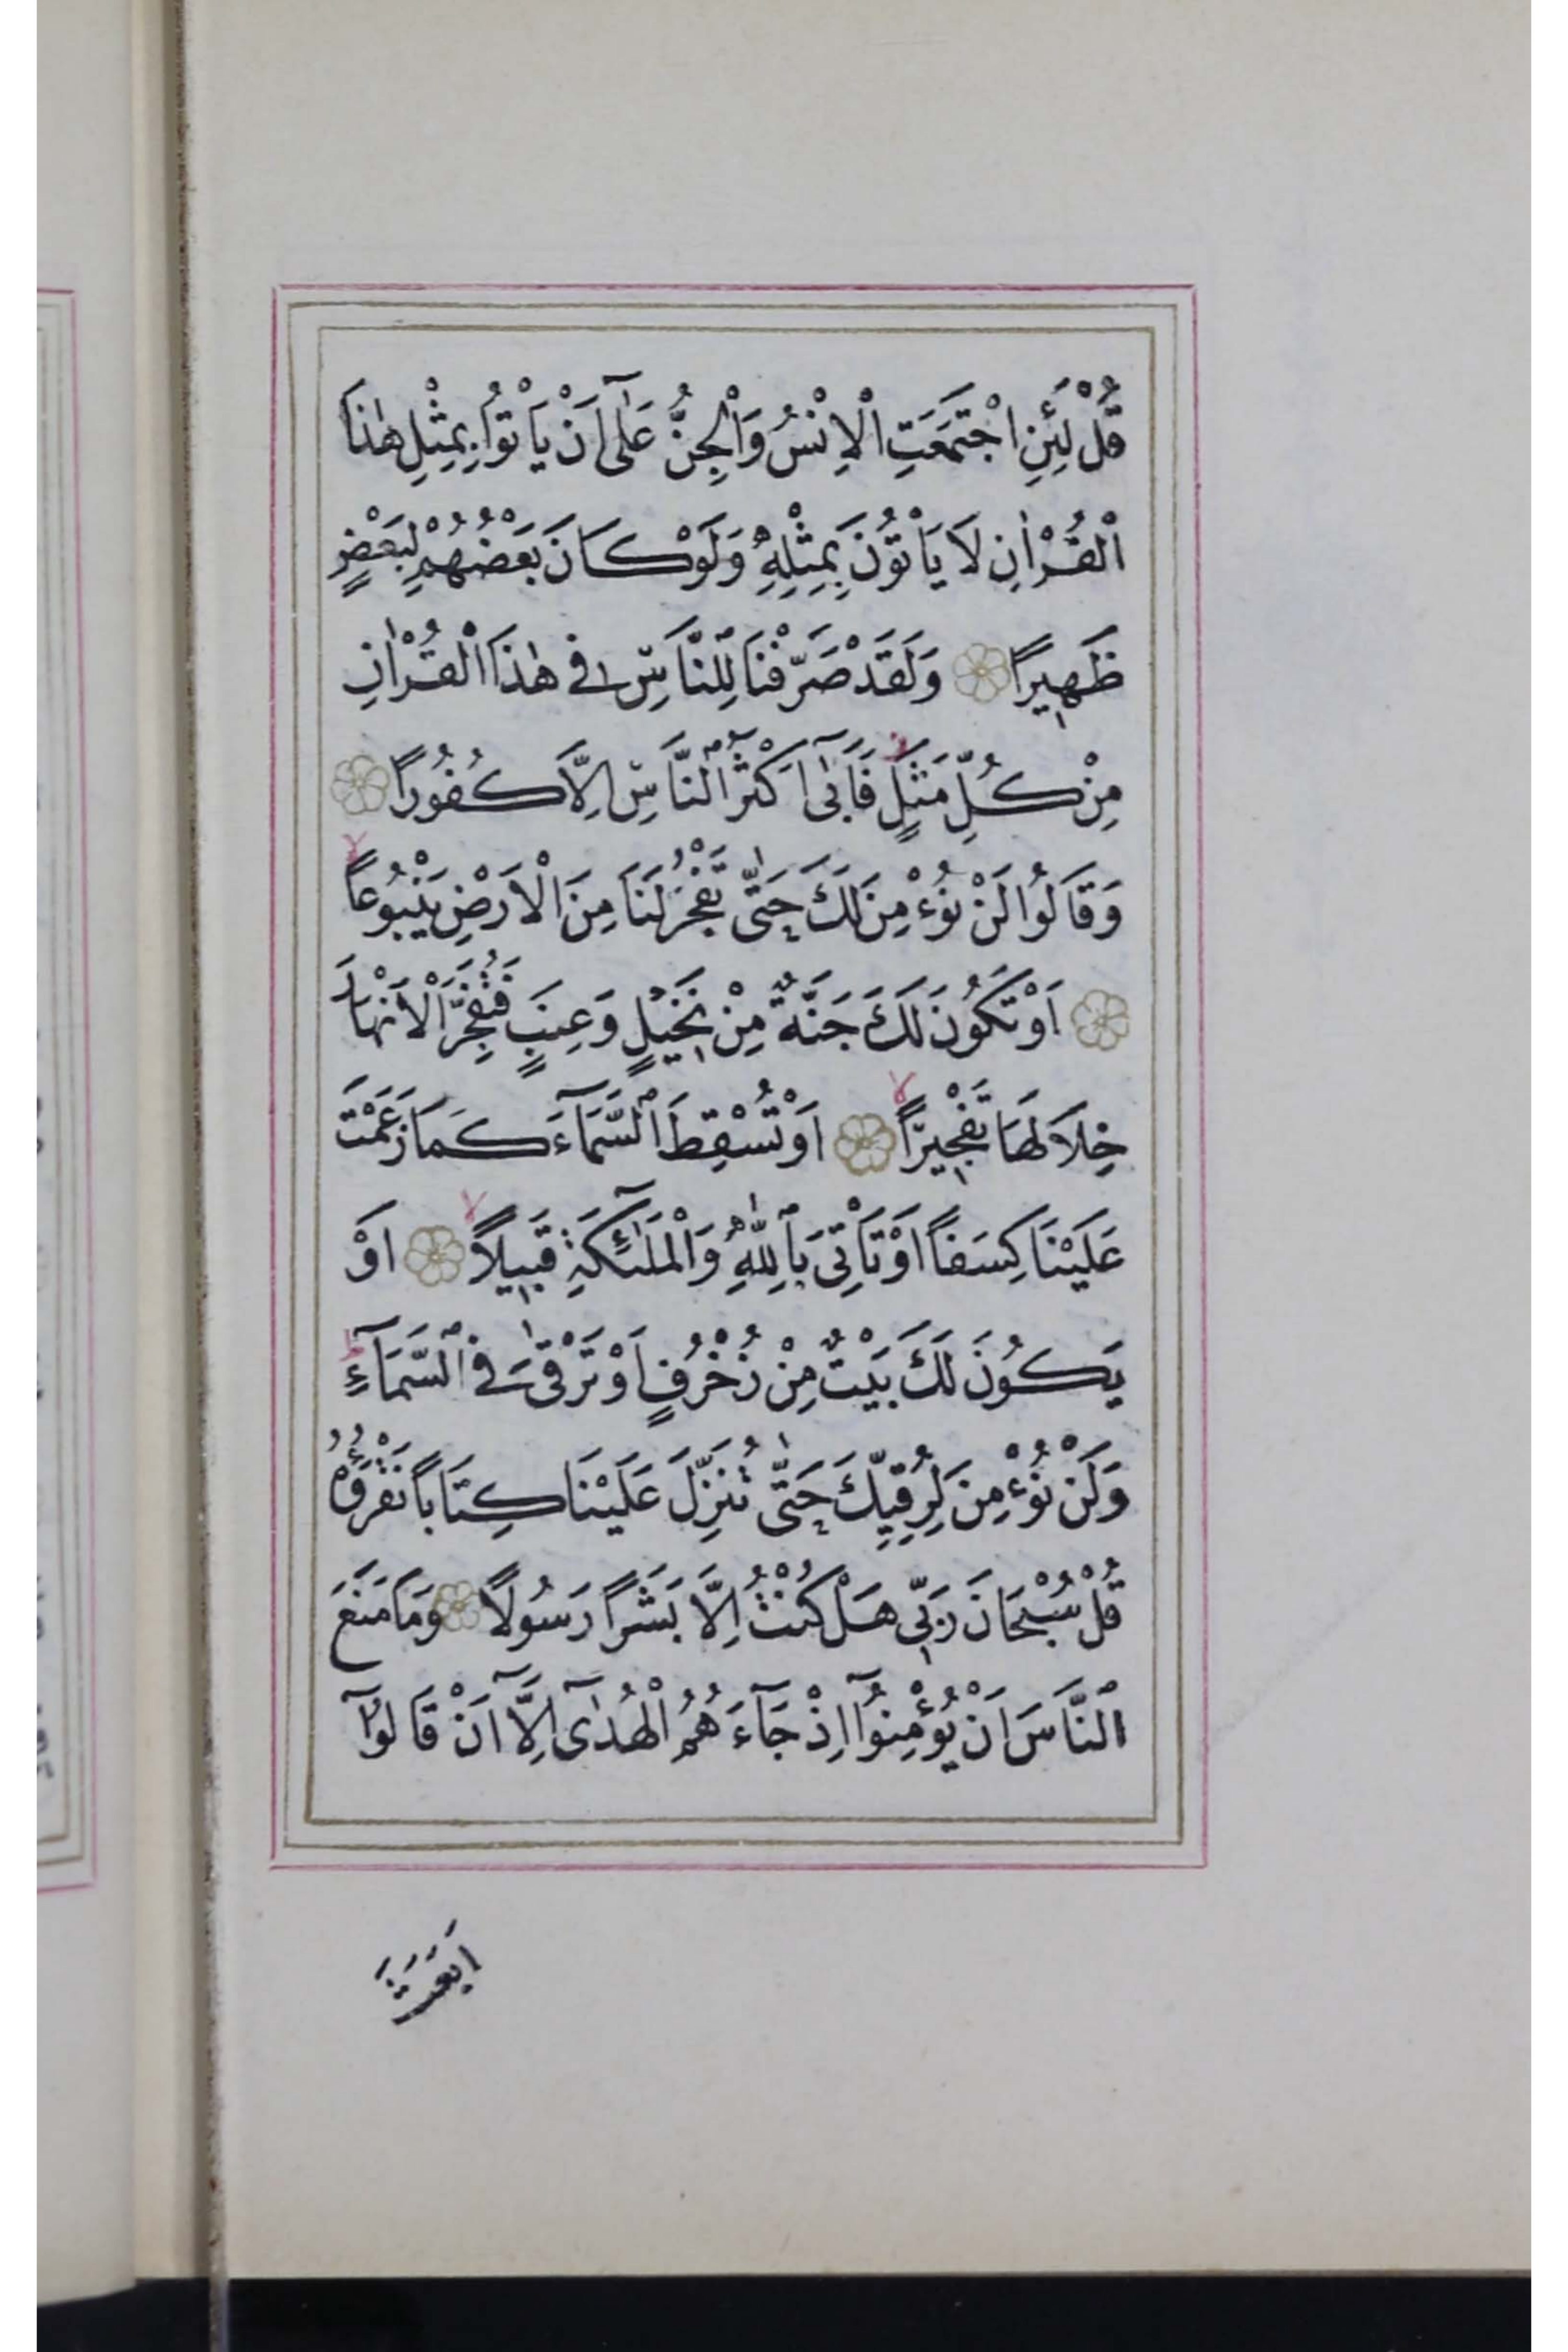 قُلْ لَئِنِ اجْتَمَعَتِ الْاِنْسُ وَالْجِنُّ عَلٰٓى اَنْ يَاْتُوا بِمِثْلِ هٰذَا
الْقُرْاٰنِ لَا يَاْتُونَ بِمِثْلِهٖ وَلَوْ كَانَ بَعْضُهُمْ لِبَعْضٍ
ظَهِيرًا وَلَقَدْ صَرَّفْنَا لِلنَّاسِ فِي هٰذَا الْقُرْاٰنِ
مِنْ كُلِّ مَثَلٍ فَاَبٰٓى اَكْثَرُ النَّاسِ اِلَّا كُفُورًا
وَقَالُوا لَنْ نُؤْمِنَ لَكَ حَتّٰى تَفْجُرَ لَنَا مِنَ الْاَرْضِ يَنْبُوعًا
اَوْ تَكُونَ لَكَ جَنَّةٌ مِنْ نَخِيلٍ وَعِنَبٍ فَتُفَجِّرَ الْاَنْهَارَ
خِلَالَهَا تَفْجِيرًا اَوْ تُسْقِطَ السَّمَآءَ كَمَا زَعَمْتَ
عَلَيْنَا كِسَفًا اَوْ تَاْتِيَ بِاللّٰهِ وَالْمَلٰٓئِكَةِ قَبِيلًا اَوْ
يَكُونَ لَكَ بَيْتٌ مِنْ زُخْرُفٍ اَوْ تَرْقٰى فِي السَّمَآءِ
وَلَنْ نُؤْمِنَ لِرُقِيِّكَ حَتّٰى تُنَزِّلَ عَلَيْنَا كِتَابًا نَقْرَؤُهُ
قُلْ سُبْحَانَ رَبِّي هَلْ كُنْتُ اِلَّا بَشَرًا رَسُولًا وَمَا مَنَعَ
النَّاسَ اَنْ يُؤْمِنُوٓا اِذْ جَآءَهُمُ الْهُدٰٓى اِلَّٓا اَنْ قَالُوٓا
اَبَعَثَ